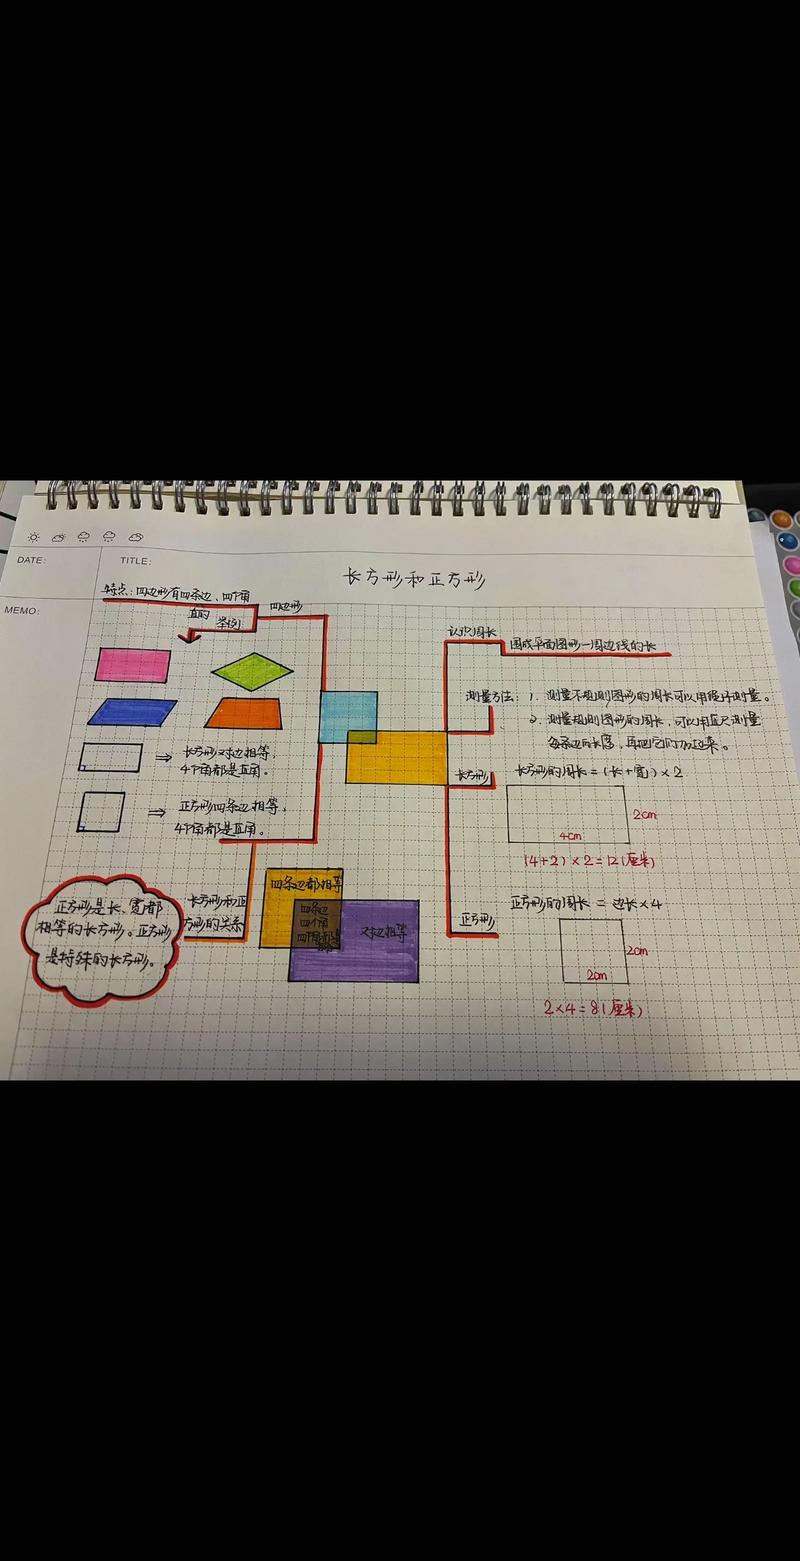 DATE:
TITLE:
MEMO:
长方形和正方形
特点:四边形有四条边、四个角
直的
举例
四边形
长方形对边相等,
4个角都是直角。
正方形四条边相等,
4个角都是直角。
长方形和正
方形的关系
正方形是长、宽都
相等的长方形。正方形
是特殊的长方形。
四条边都相等
四条边
四个角
四个角都是
对边相等
认识周长
围成平面图形一周边线的长
测量方法:1. 测量不规则图形的周长可以用绳子测量。
2. 测量规则图形的周长,可以用直尺测量
每条边的长度,再把它们加起来。
长方形
长方形的周长=(长+宽)×2
2cm
4cm
(4+2)×2=12(厘米)
正方形
正方形的周长=边长×4
2cm
2cm
2×4=8(厘米)